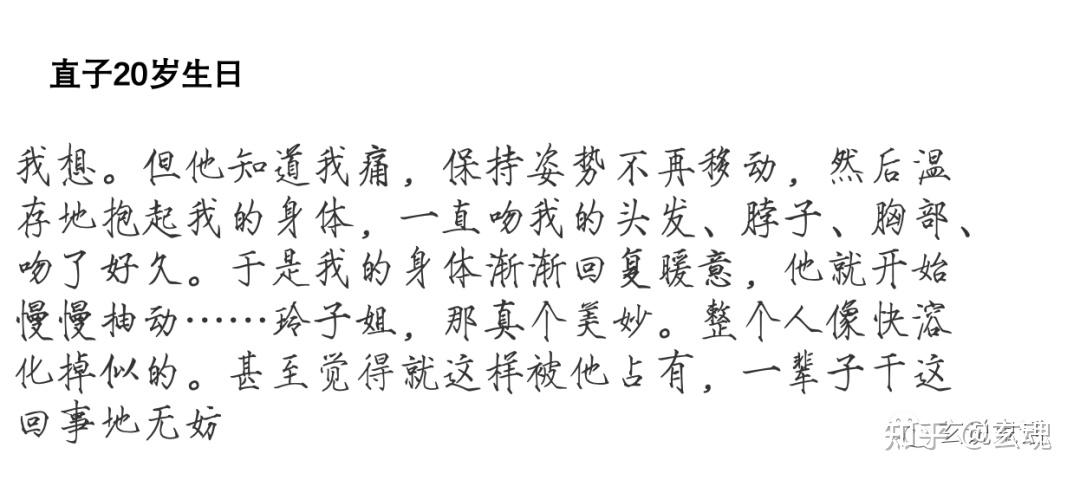 直子20岁生日
我想。但他知道我痛，保持姿势不再移动，然后温
存地抱起我的身体，一直吻我的头发、脖子、胸部、
吻了好久。于是我的身体渐渐回复暖意，他就开始
慢慢抽动……玲子姐，那真个美妙。整个人像快溶
化掉似的。甚至觉得就这样被他占有，一辈子干这
回事地无妨
知乎 @玄魂